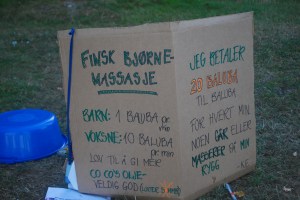 FINSK BJØRNE-
MASSASJE
BARN: 1 BALUBA pr
VOKSNE: 10 BALUBA
pr min
LOV TIL Å GI MER
COCOS OLJE-
VELDIG GOD
JEG BETALER
20 BALUBA
TIL BALUBA
FOR HVERT MIN
NOEN GÅR ELLER
MASSERER PÅ MIN
RYGG